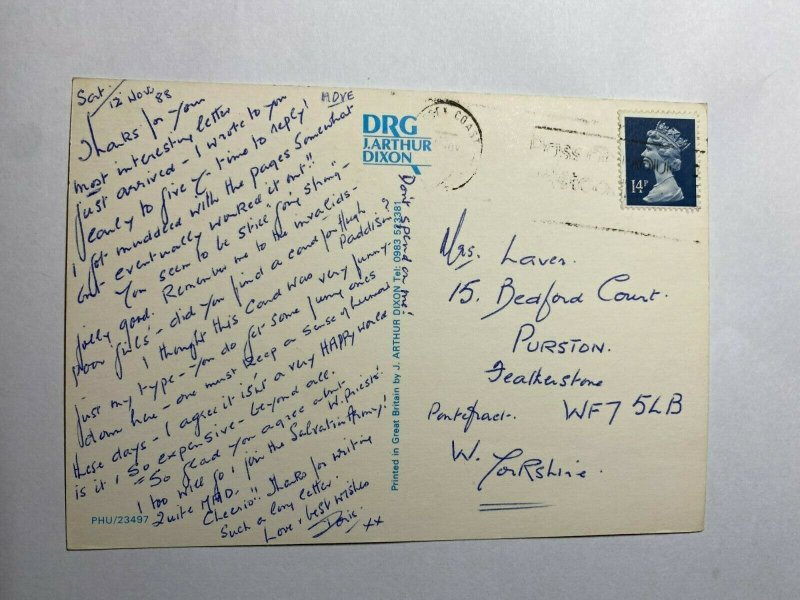 Sat.
12 Nov 88
HOVE
Thanks for your
most interesting letter
just arrived - I wrote to you
early to give y. time to reply!
I got muddled with the pages somewhat
but eventually worked it out!!
You seem to be still going strong -
jolly good. Remember me to the invalids -
poor girls - did you find a card for Hugh
Paddison?
I thought this card was very funny.
just my type - you do get some funny ones
down here - one must keep a sense of humour
these days - I agree it isn't a very HAPPY world
is it! So expensive - beyond all.
So glad you agree abut
W. Priests.
I too will go & join the Salvation Army!
Quite MAD.
Cheerio!! Thanks for writing
such a long letter.
Love & best wishes
Doris. xx
PHU/23497
DRG
J. ARTHUR
DIXON
Don't spend on me!
Printed in Great Britain by J. ARTHUR DIXON Tel: 0983 523381
COAST
14P
Mrs. Laver.
15. Bedford Court.
PURSTON.
Featherstone
Pontefract. WF7 5LB
W. Yorkshire.